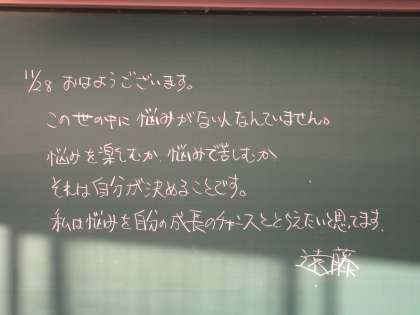 11/28 おはようございます。
この世の中に悩みがない人なんていません。
悩みを楽しむか、悩みで苦しむか
それは自分が決めることです。
私は悩みを自分の成長のチャンスととらえたいと思てます。
遠藤